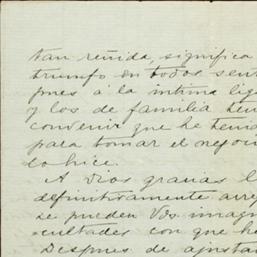 tan reñida, significa
triunfo en todos sent
pues á la íntima lig
y los de familia ten
convenir que he tenid
para tomar el negoci
lo hice.
A Dios gracias l
definitivamente arre
se pueden Vds. imagin
cultades con que he
Despues de ajusta